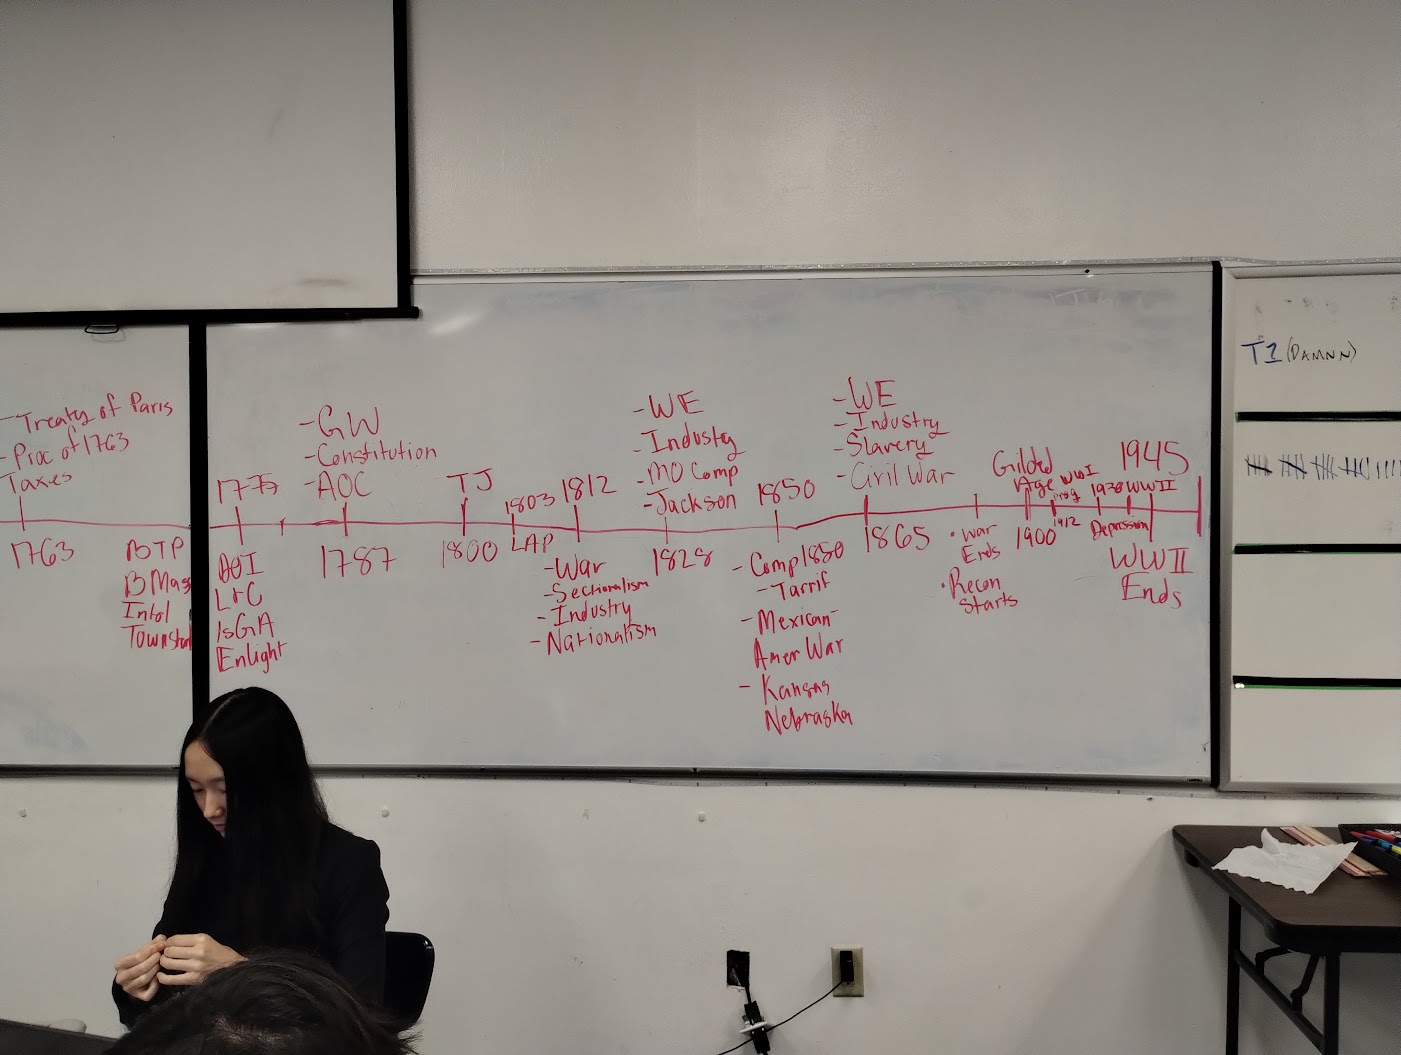 - Treaty of Paris
- Proc of 1763
Taxes
1763
BTP
BMas
Intol
Townsh
1775
DOI
L+C
IsGA
Enlight
- GW
- Constitution
- AOC
1787
TJ
1800
1803
LAP
1812
- War
- Sectionalism
- Industry
- Nationalism
- WE
- Industy
- MO Comp
- Jackson
1828
1850
- Comp 1850
- Tarrif
- Mexican
Amer War
- Kansas
Nebraska
- WE
- Industry
- Slavery
- Civil War
1865
• War
Ends
• Recon
Starts
Gilded
Age
1900
WWI
Prog
1912
1930
Depression
WWII
1945
WWII
Ends
T1 (DAMNN)